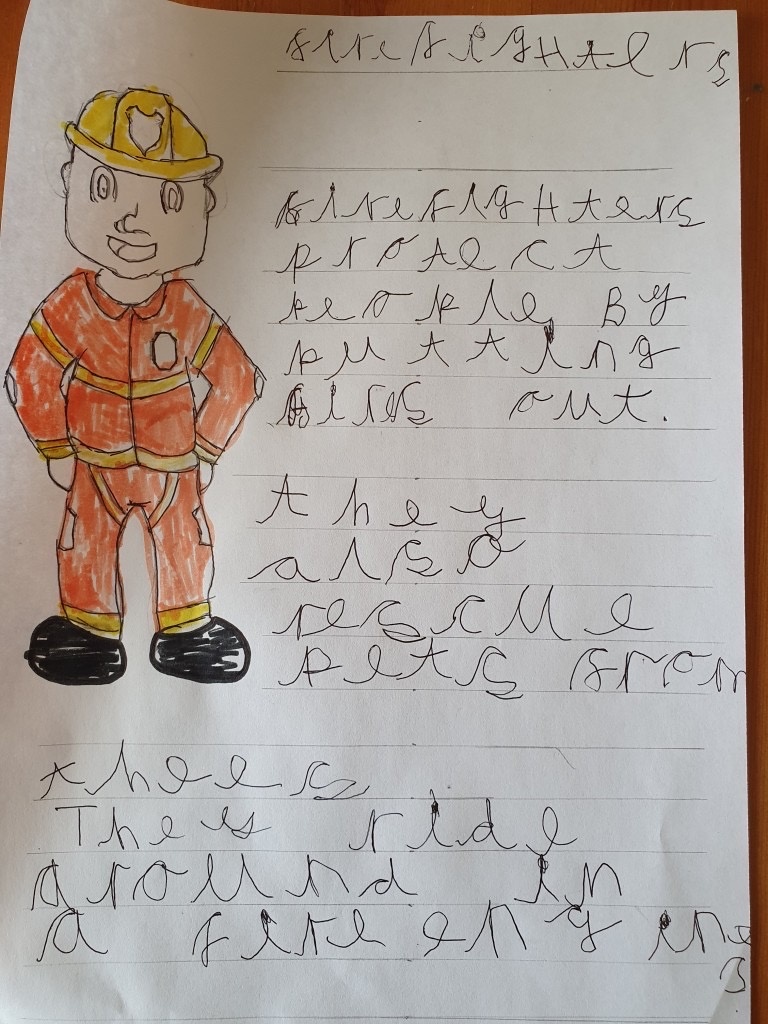 firefigHters
firefigHters
protect
people By
putting
fires out.
they
also
rescue
pets from
thees
They ride
around in
a fire engine